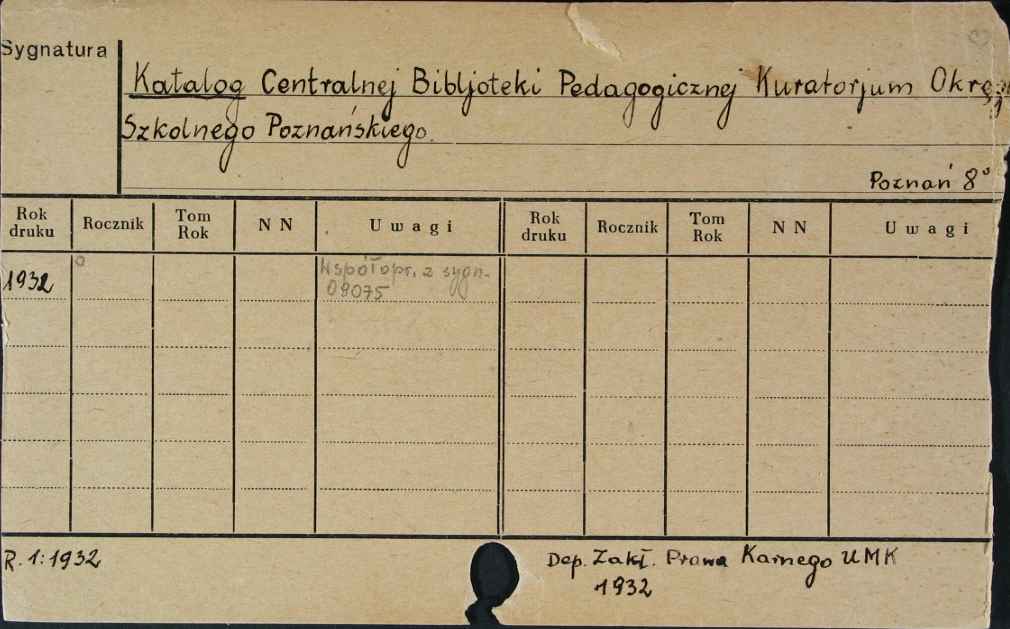 Sygnatura
Katalog Centralnej Bibljoteki Pedagogicznej Kuratorjum
Szkolnego Poznańskiego.
Poznań 8°
Rok druku Rocznik Tom Rok N N Uwagi Rok druku Rocznik Tom Rok N N Uwagi
1932 Współopr. z sygn.
09075
R. 1:1932 Dep. Zakł. Prawa Karnego UMK
1932